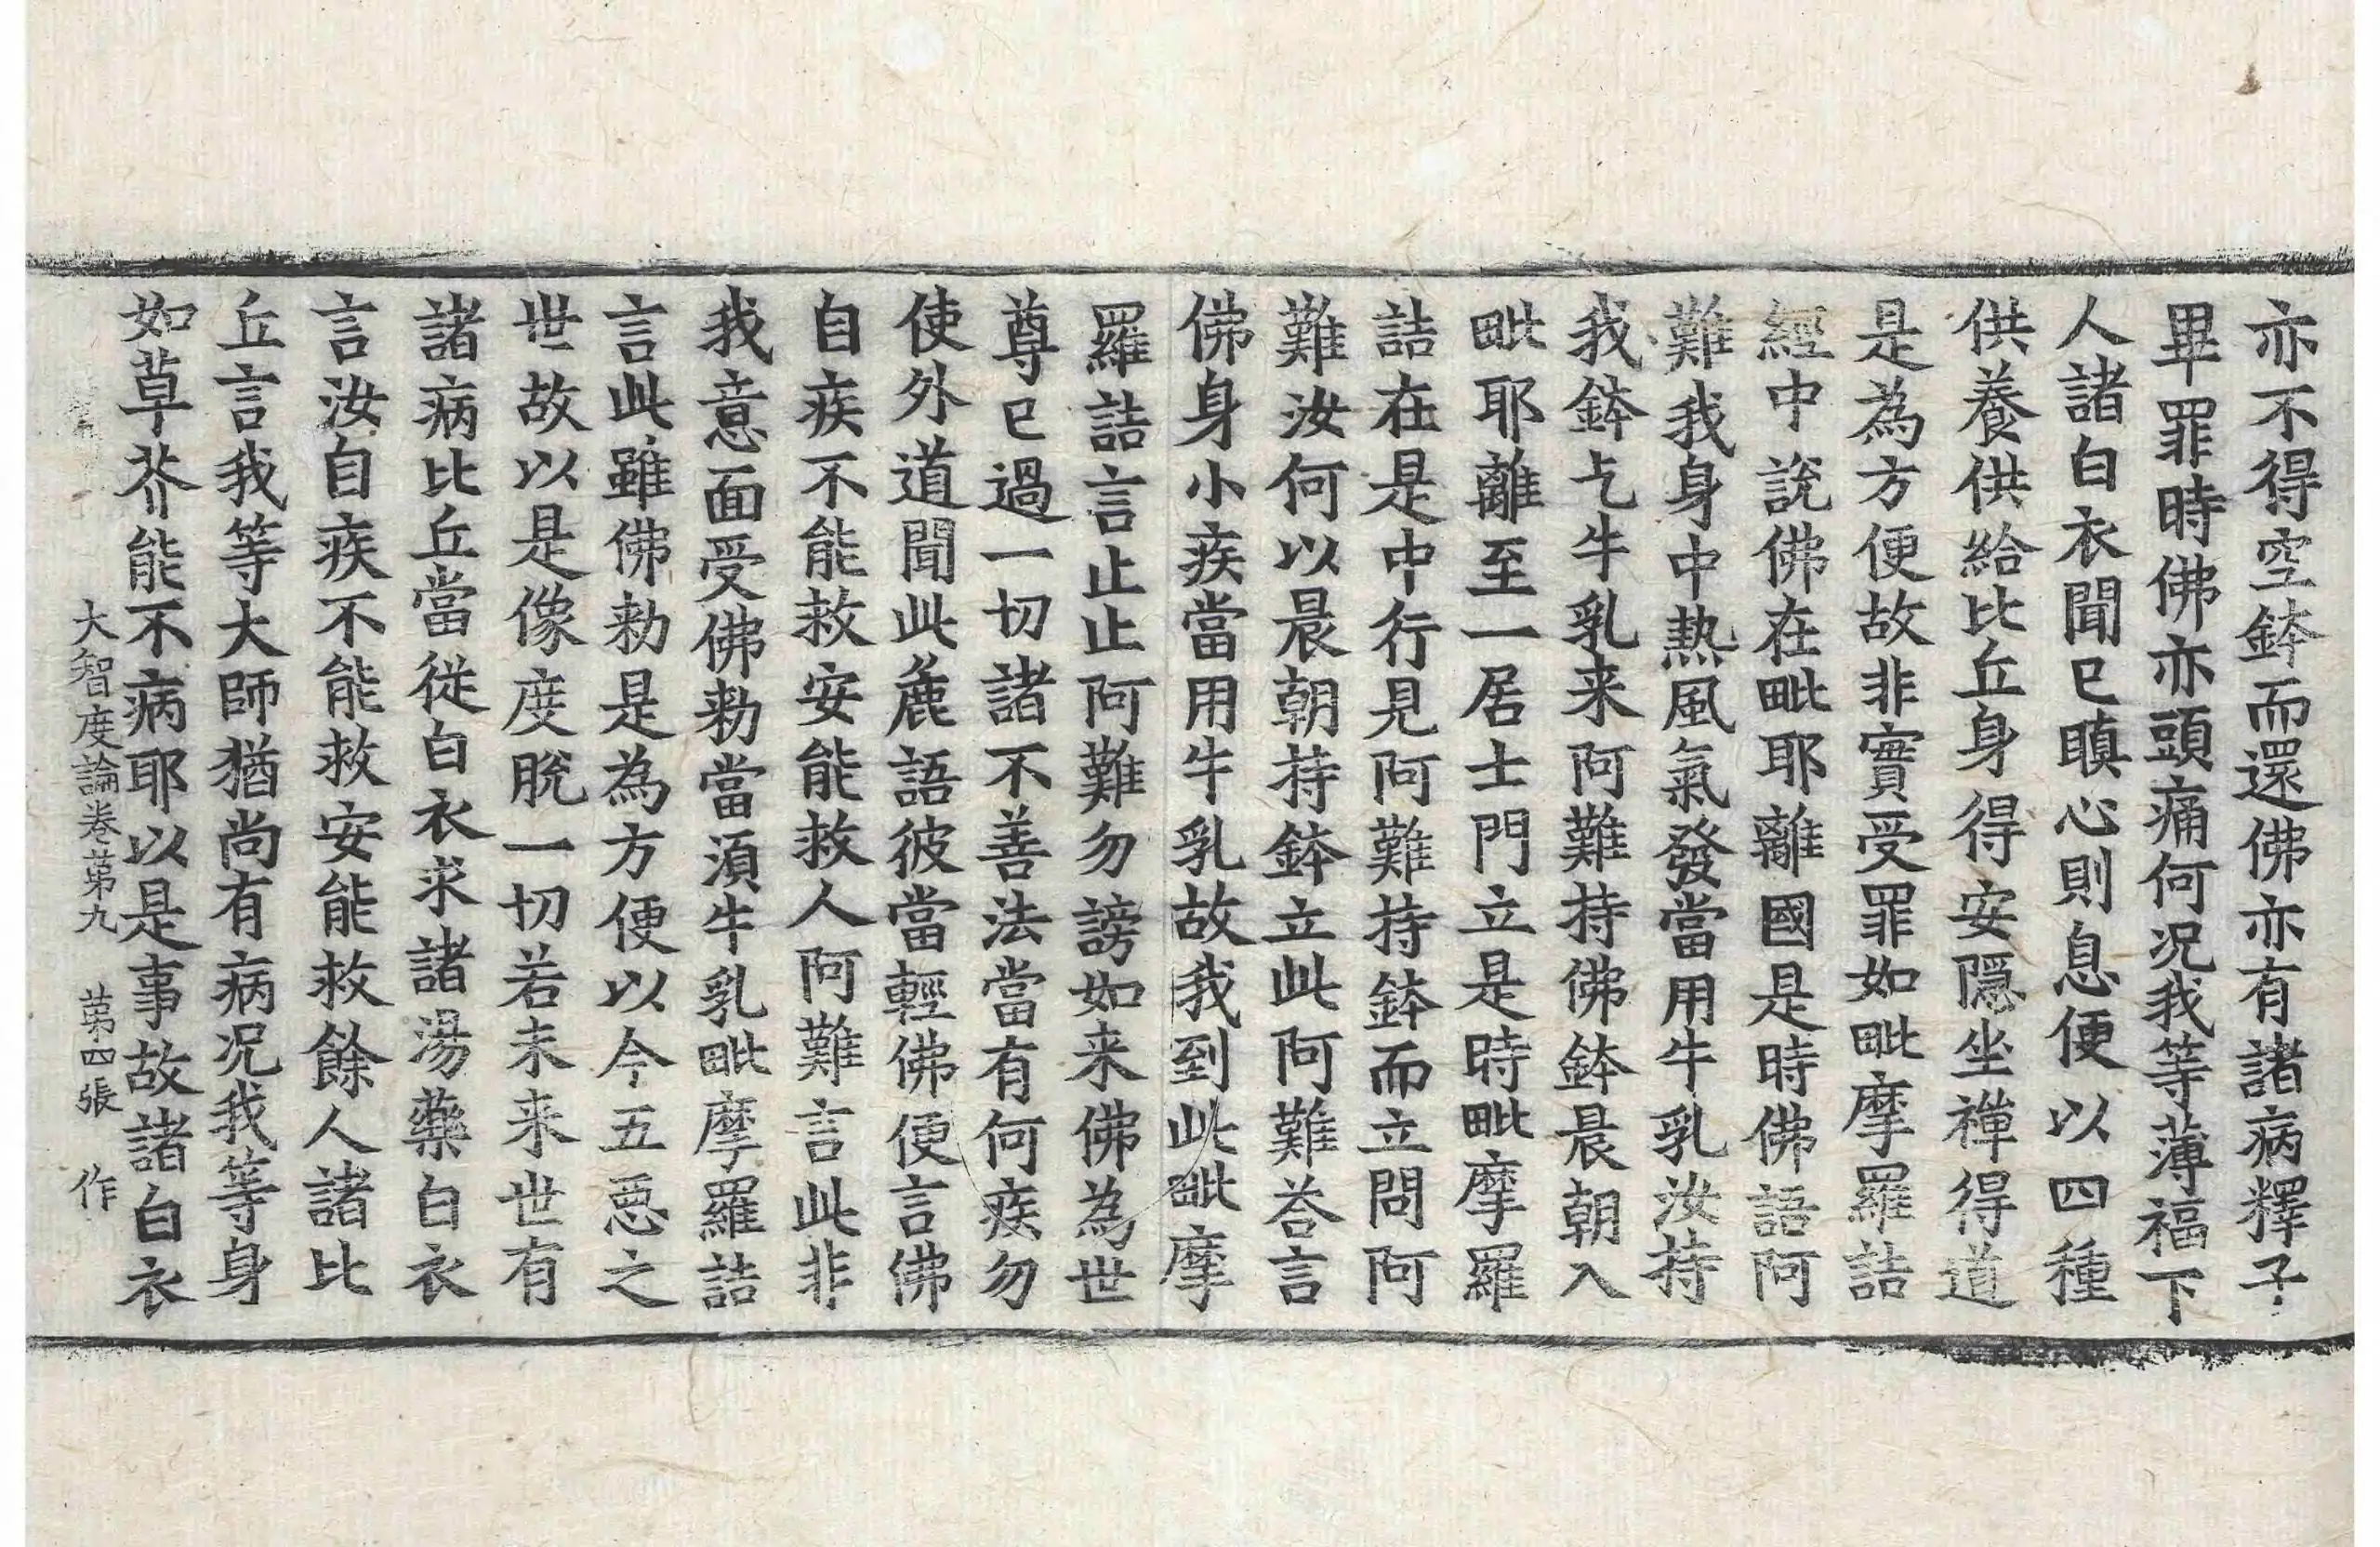 亦不得空鉢而還佛亦有諸病釋子
畢罪時佛亦頭痛何況我等薄福下
人諸白衣聞已瞋心則息便以四種
供養供給比丘身得安隱坐禪得道
是為方便故非實受罪如毗摩羅詰
經中說佛在毗耶離國是時佛語阿
難我身中熱風氣發當用牛乳汝持
我鉢乞牛乳来阿難持佛鉢晨朝入
毗耶離至一居士門立是時毗摩羅
詰在是中行見阿難持鉢而立問阿
難汝何以晨朝持鉢立此阿難荅言
佛身小疾當用牛乳故我到此毗摩
羅詰言止止阿難勿謗如来佛為世
尊已過一切諸不善法當有何疾勿
使外道聞此麁語彼當輕佛便言佛
自疾不能救安能救人阿難言此非
我意面受佛勑當湏牛乳毗摩羅詰
言此雖佛勑是為方便以今五惡之
世故以是像度脫一切若未来世有
諸病比丘當從白衣求諸湯藥白衣
言汝自疾不能救安能救餘人諸比
丘言我等大師猶尚有病况我等身
如草芥能不病耶以是事故諸白衣
大智度論卷第九 第四張 作